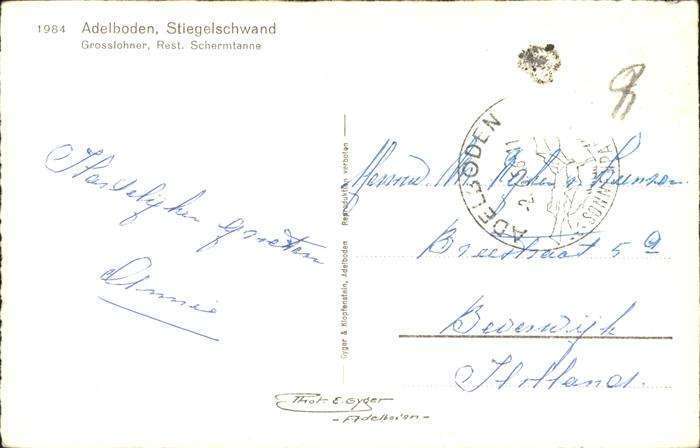 1984 Adelboden, Stiegelschwand
Grosslohner, Rest. Schermtanne
Hartelijke groeten
Annie
Reproduktion verboten
Gyger & Klopfenstein, Adelboden
ADELBODEN
Breestraat 5a
Beverwijk
Holland.
Phot. E. Gyger
- Adelboden -